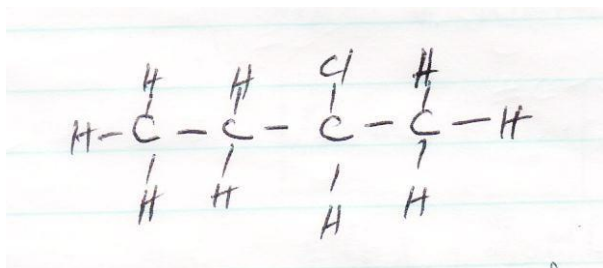 H H Cl H
H-C-C-C-C-H
H H H H